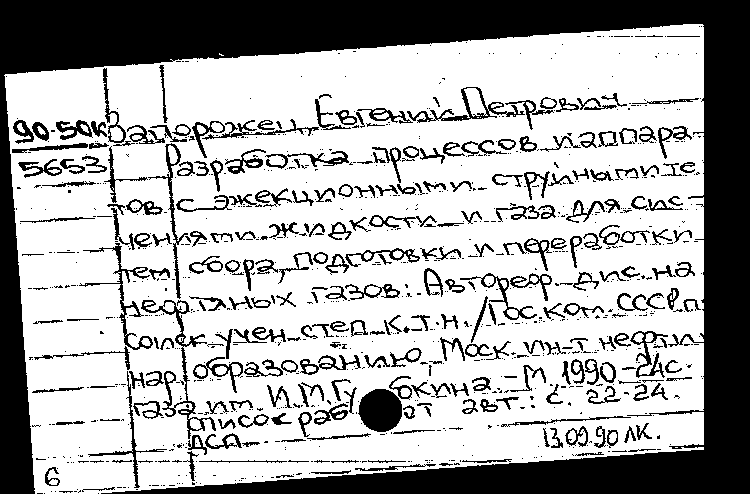 90-50к Запорожец, Евгений Петрович
5653 Разработка процессов и аппара-
тов с эжекционными струйными те
чениями жидкости и газа для сис-
тем сбора, подготовки и переработки
нефтяных газов: Автореф. дис. на
соиск учен. степ к.т.н. / Гос. ком. СССР п
нар. образованию, Моск ин-т нефти
газа им. И.М.Гу бкина. - М, 1990 - 24с.
список раб от авт.: с. 22-24.
ДСП
13.09.90 ЛК.
6